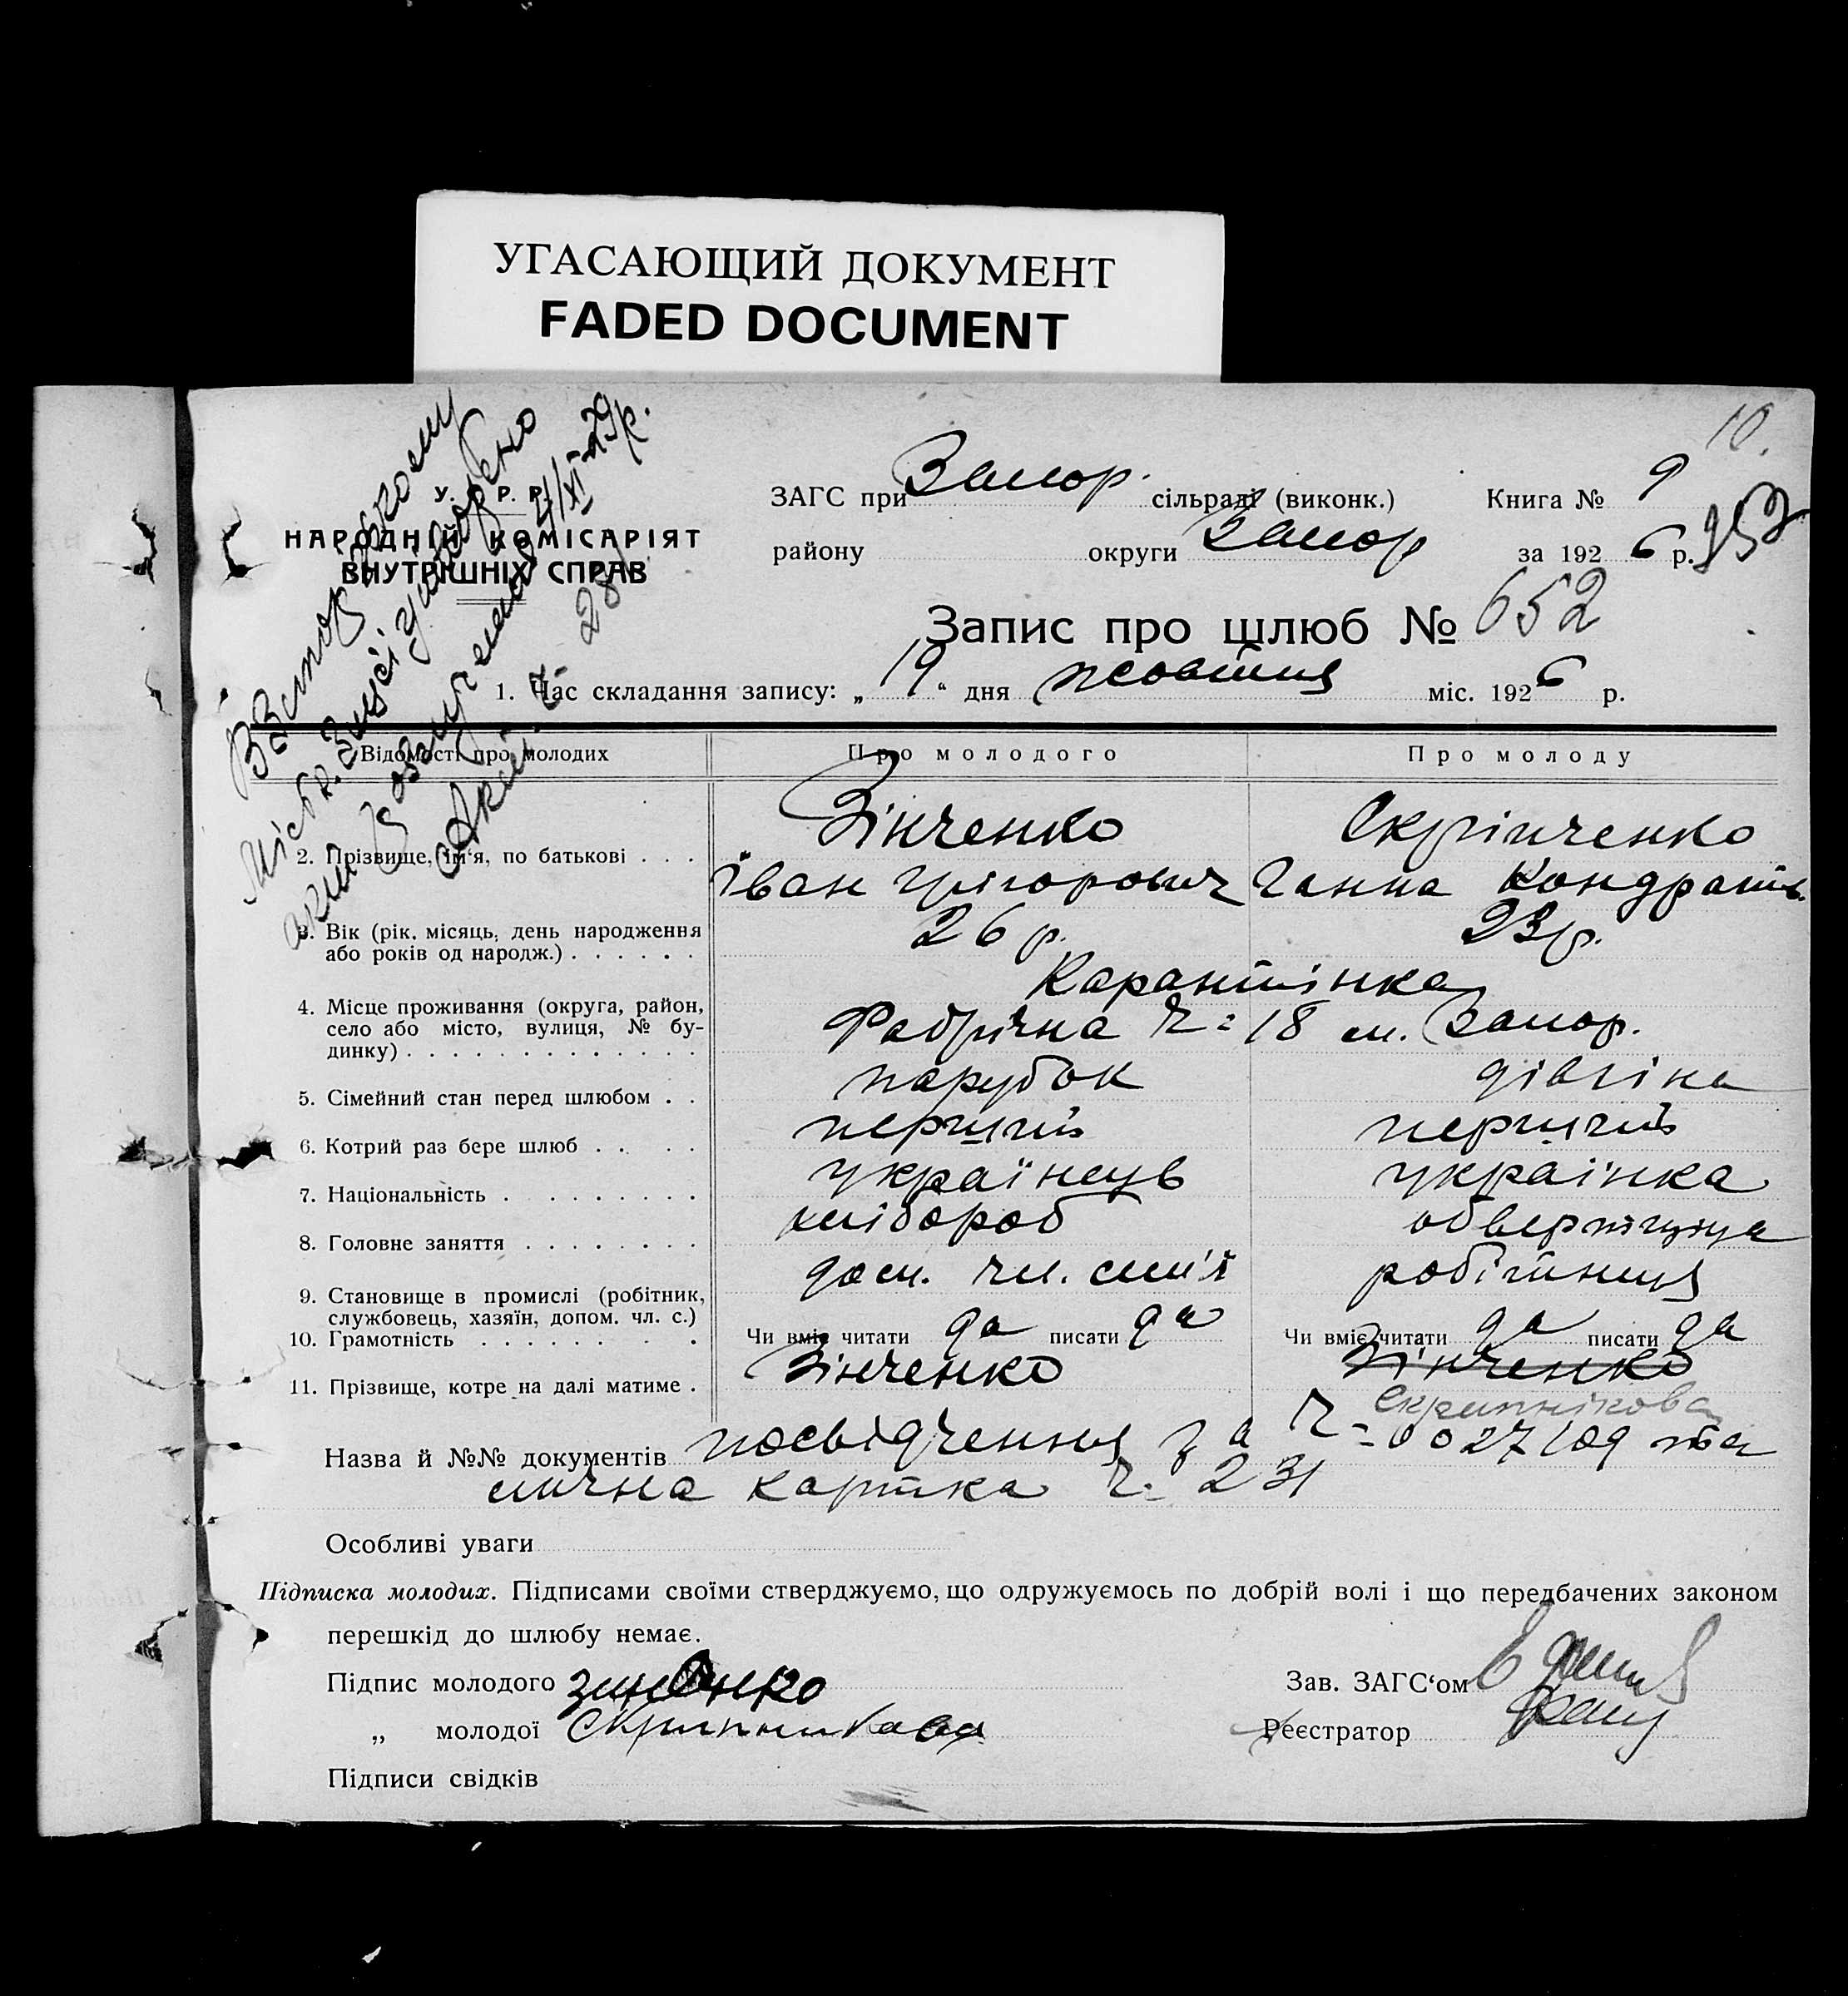 УГАСАЮЩИЙ ДОКУМЕНТ
FADED DOCUMENT
10.
У. Р. Р.
НАРОДНІЙ КОМІСАРІЯТ
ВНУТРІШНІХ СПРАВ
ЗАГС при Запор. сільраді (виконк.) Книга № 9
району округи Запор за 1926 р. 953
Запис про шлюб № 652
1. Час складання запису: „19“ дня жовтня міс. 1926 р.
В Запорізькому
Місбр. Загсі утворено
акт розлучення 4/XI-29р.
Акт. ч. 28
Відомості про молодих Про молодого Про молоду
Зінченко Скрінченко
2. Прізвище, ім'я, по батькові . . . Іван Грігорович Ганна Кондратів.
3. Вік (рік, місяць, день народження 26 р. 23 р.
або років од народж.) . . . . . .
Карантінка
4. Місце проживання (округа, район, Фабрічна ч = 18 м. Запор.
село або місто, вулиця, № бу-
динку) . . . . . . . . . . . . .
5. Сімейний стан перед шлюбом . . парубок дівчіна
6. Котрий раз бере шлюб . . . . перший перший
7. Національність . . . . . . . . українець українка
8. Головне заняття . . . . . . . . хлібороб обвертчиця
9. Становище в промислі (робітник, доп. чл. сим'ї робітниця
службовець, хазяїн, допом. чл. с.)
10. Грамотність . . . . . . . . Чи вміє читати да писати да Чи вміє читати да писати да
11. Прізвище, котре на далі матиме . Зінченко Зінченко
Скрипнікова
Назва й №№ документів посвідчення за ч = 0027109 та
лична картка ч. 231
Особливі уваги
Підписка молодих. Підписами своїми стверджуємо, що одружуємось по добрій волі і що передбачених законом
перешкід до шлюбу немає.
Підпис молодого Зинченко Зав. ЗАГС‘ом
„ молодої Скрипникова Реєстратор
Підписи свідків